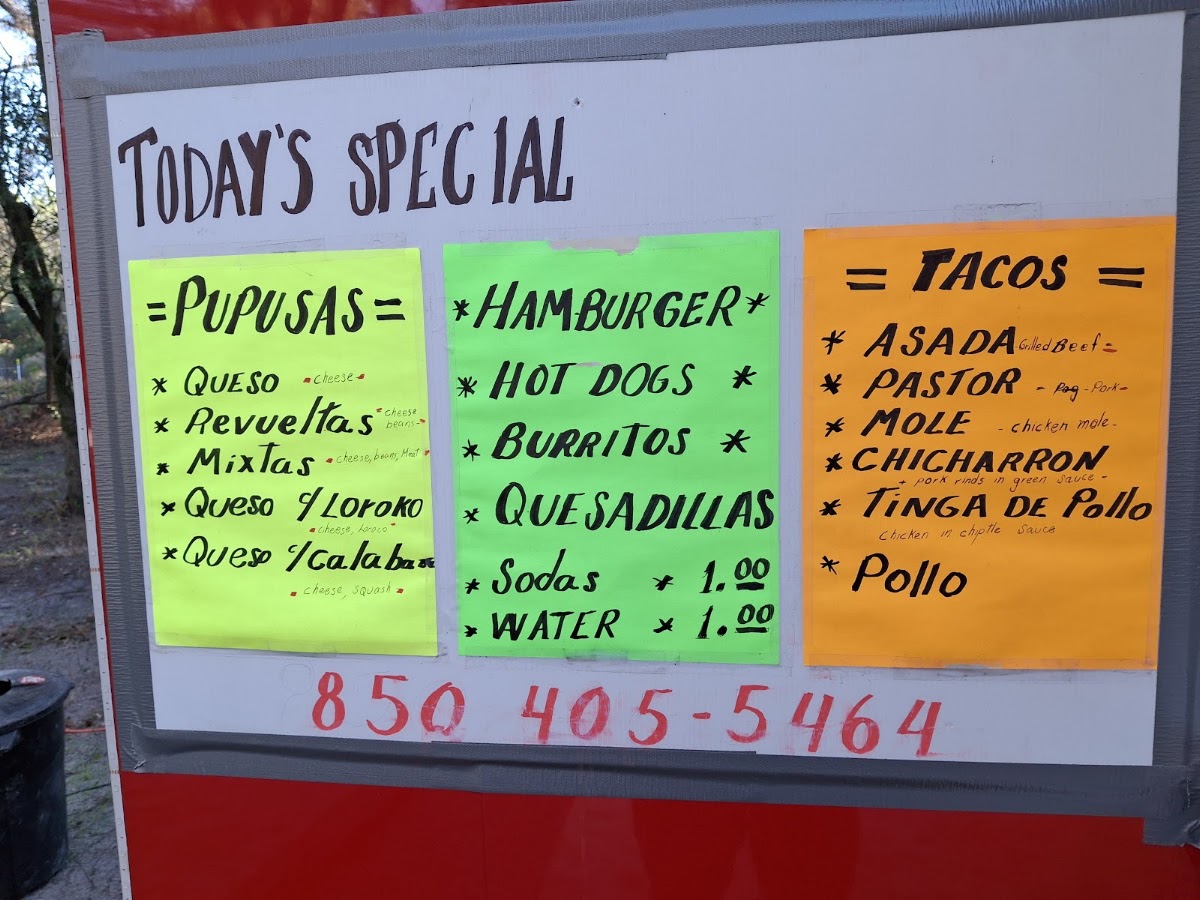 TODAY'S SPECIAL
=PUPUSAS=
* QUESO - cheese -
* Revueltas - cheese
beans -
* Mixtas - cheese, beans, Meat -
* Queso c/Loroko
- cheese, Loroco -
* Queso c/Calabaza
- cheese, squash -
*HAMBURGER*
* HOT DOGS *
* BURRITOS *
* QUESADILLAS
* Sodas * 1.00
* WATER * 1.00
= TACOS =
* ASADA - Grilled Beef -
* PASTOR - Pog - Pork -
* MOLE - chicken mole -
* CHICHARRON
+ pork rinds in green sauce -
* TINGA DE Pollo
Chicken in chiptle sauce
* Pollo
850 405-5464